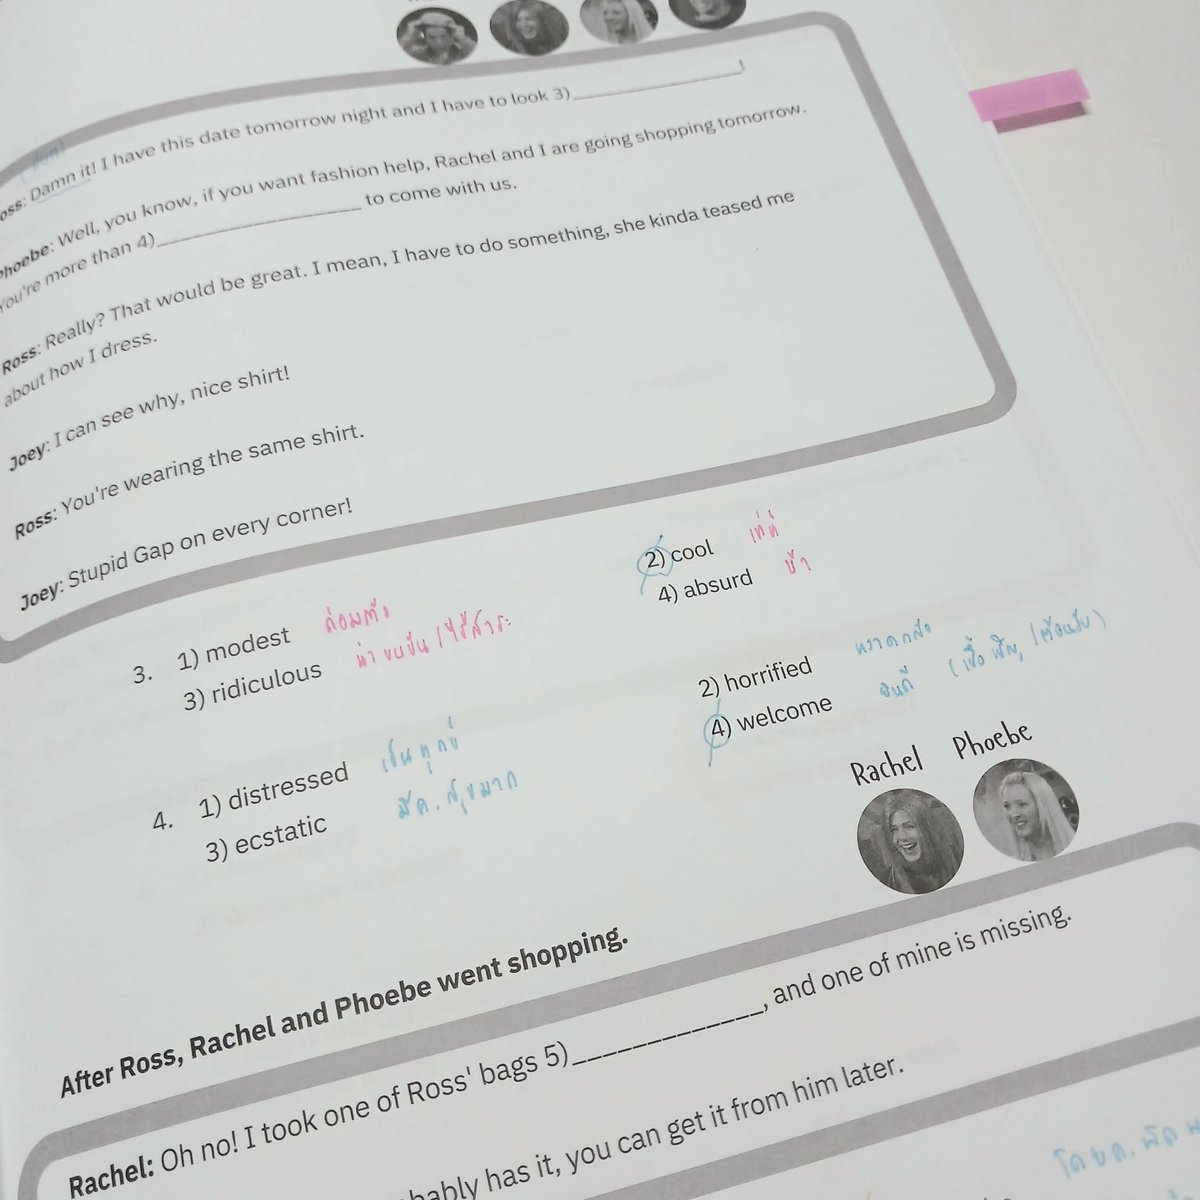 Ross: Damn it! I have this date tomorrow night and I have to look 3)____________!
Phoebe: Well, you know, if you want fashion help, Rachel and I are going shopping tomorrow.
You're more than 4)____________ to come with us.
Ross: Really? That would be great. I mean, I have to do something, she kinda teased me
about how I dress.
Joey: I can see why, nice shirt!
Ross: You're wearing the same shirt.
Joey: Stupid Gap on every corner!
3. 1) modest ถ่อมตัว 2) cool เท่ห์
3) ridiculous น่าขบขัน/ไร้สาระ 4) absurd บ้า
4. 1) distressed เป็นทุกข์ 2) horrified หวาดกลัว
3) ecstatic มีค.สุขมาก 4) welcome ยินดี (เชื้อเชิญ, /ต้อนรับ)
Rachel Phoebe
After Ross, Rachel and Phoebe went shopping.
Rachel: Oh no! I took one of Ross' bags 5)____________, and one of mine is missing.
bably has it, you can get it from him later.
โดยค.ผิด